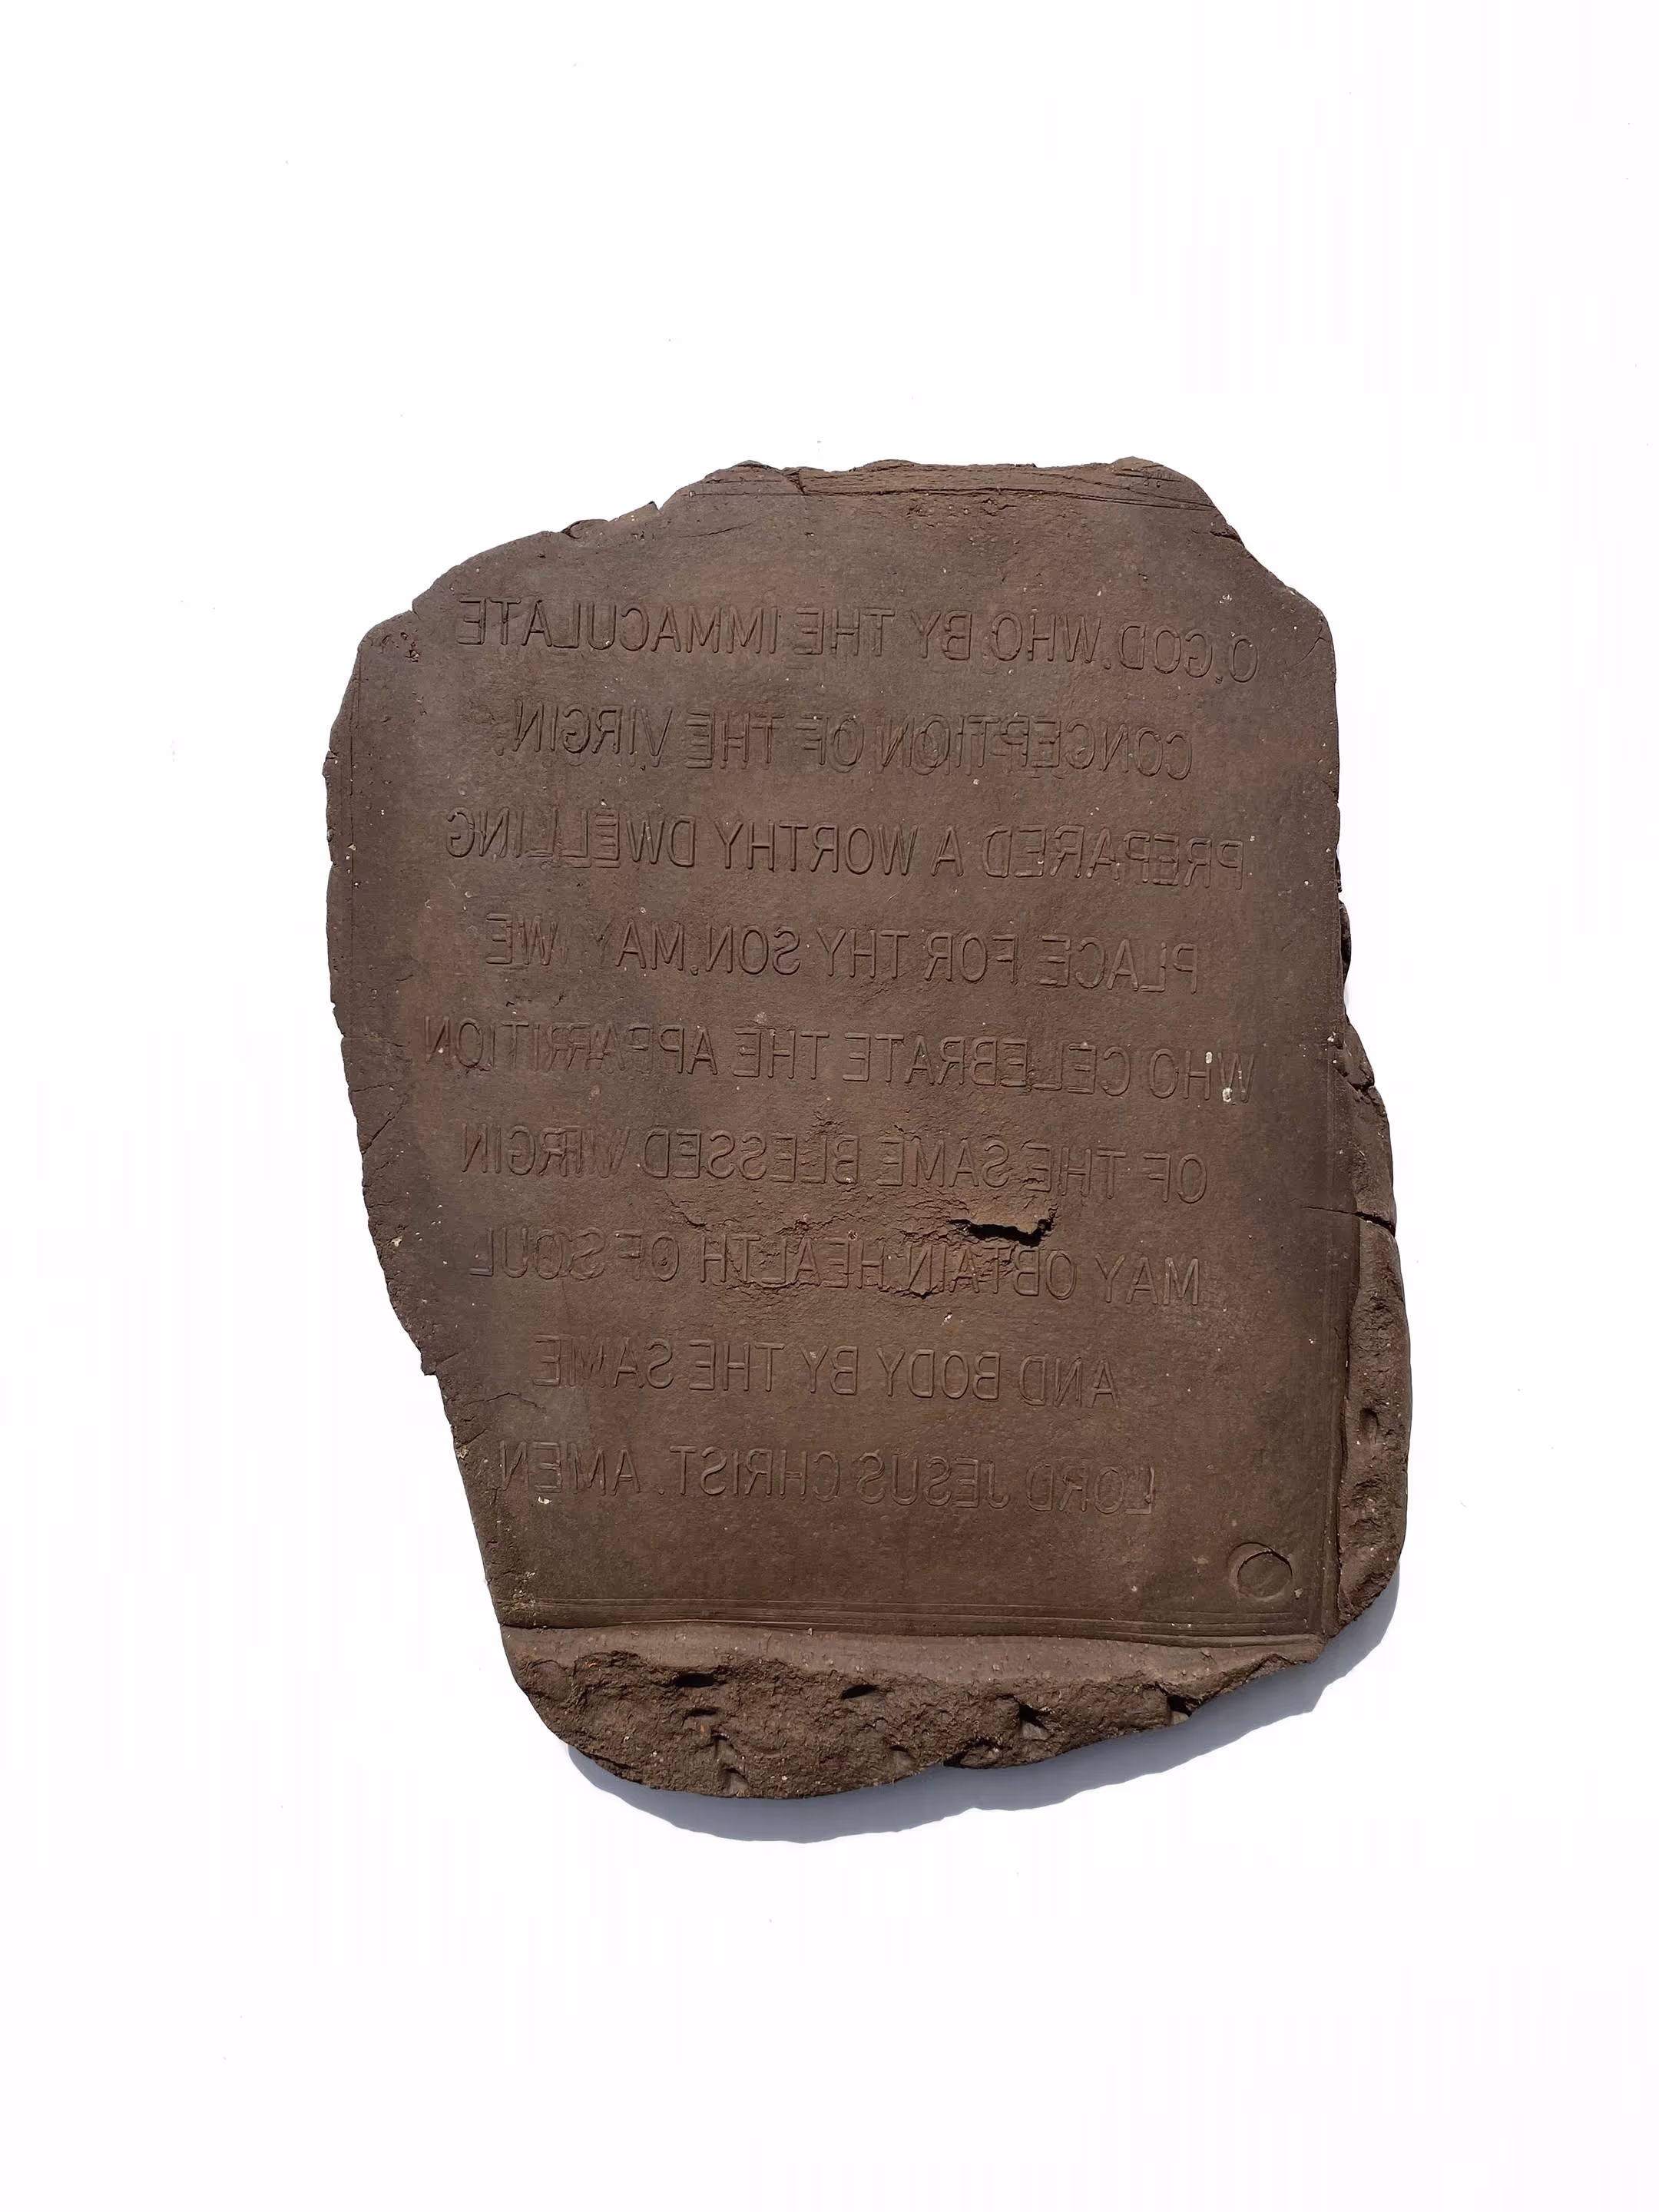 O, GOD, WHO, BY THE IMMACULATE
CONCEPTION OF THE VIRGIN,
PREPARED A WORTHY DWELLING
PLACE FOR THY SON, MAY WE
WHO CELEBRATE THE APPARRITION
OF THE SAME BLESSED VIRGIN
MAY OBTAIN, HEALTH OF SOUL
AND BODY BY THE SAME
LORD JESUS CHRIST. AMEN